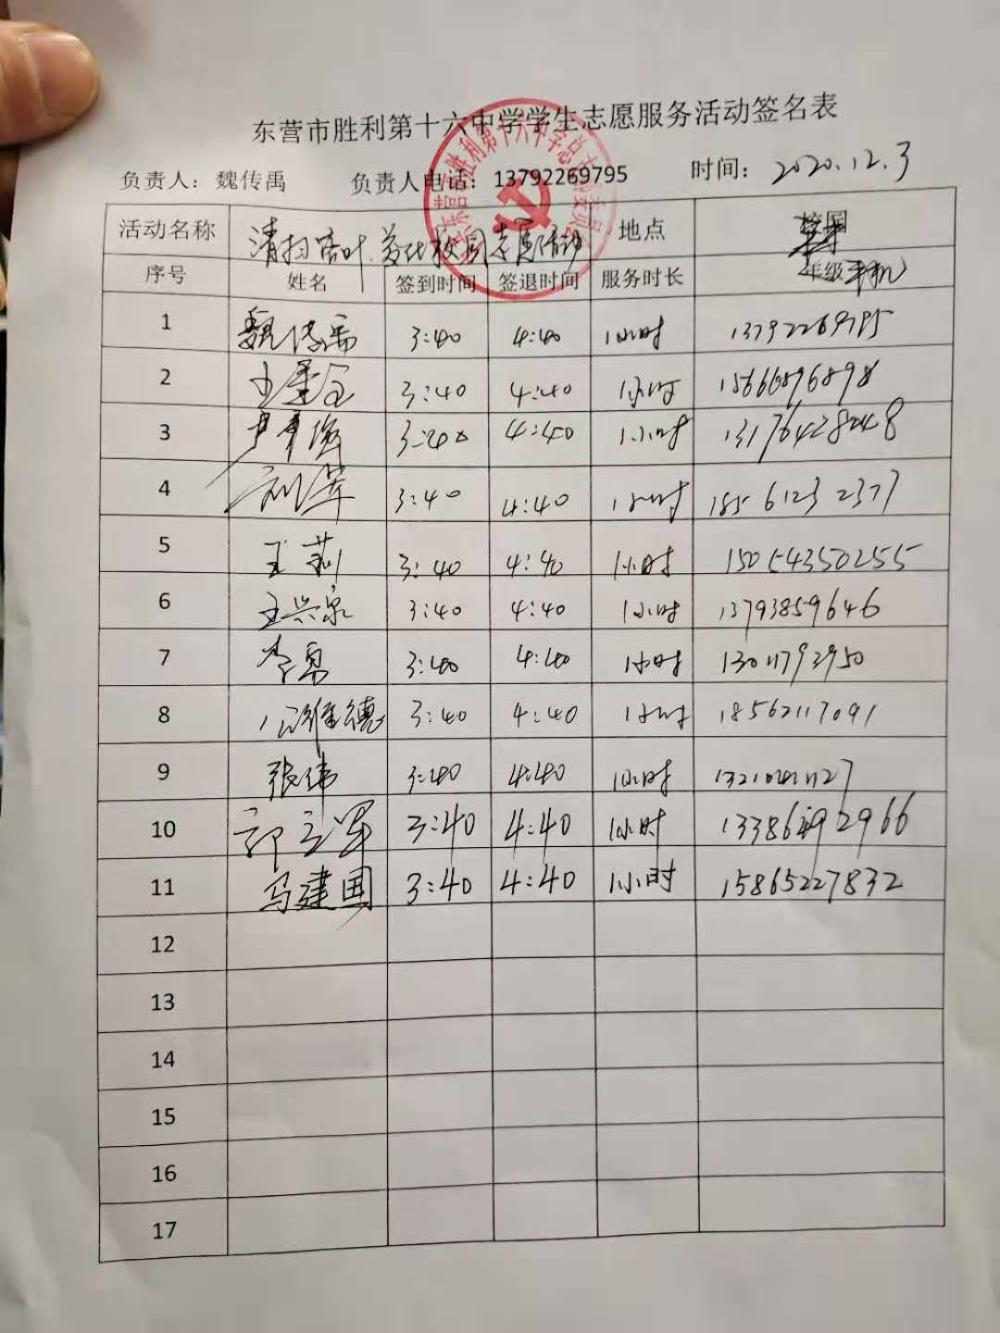 东营市胜利第十六中学学生志愿服务活动签名表
负责人：魏传禹 负责人电话：13792269795 时间：2020.12.3
活动名称 清扫落叶.美化校园志愿活动 地点 校园
序号 姓名 签到时间 签退时间 服务时长 年级 手机
1 魏传禹 3:40 4:40 1小时 13792269795
2 3:40 4:40 1小时 15666896898
3 3:40 4:40 1小时 13176428248
4 刘军 3:40 4:40 1小时 185 6123 2377
5 王莉 3:40 4:40 1小时 15054350255
6 王兴泉 3:40 4:40 1小时 13793859646
7 李勇 3:40 4:40 1小时 13011792950
8 公维德 3:40 4:40 1小时 18562117091
9 张伟 3:40 4:40 1小时
10 郭立军 3:40 4:40 1小时
11 马建国 3:40 4:40 1小时 15865227832
12
13
14
15
16
17